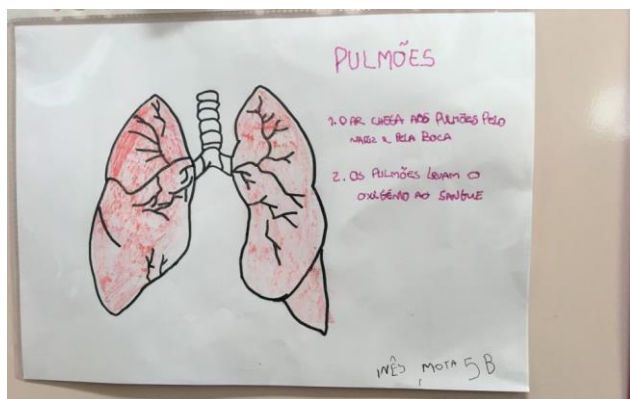 PULMÕES
1. O AR CHEGA AOS PULMÕES PELO
NARIZ E PELA BOCA
2. OS PULMÕES LEVAM O
OXIGÉNIO AO SANGUE
INÊS MOTA 5B